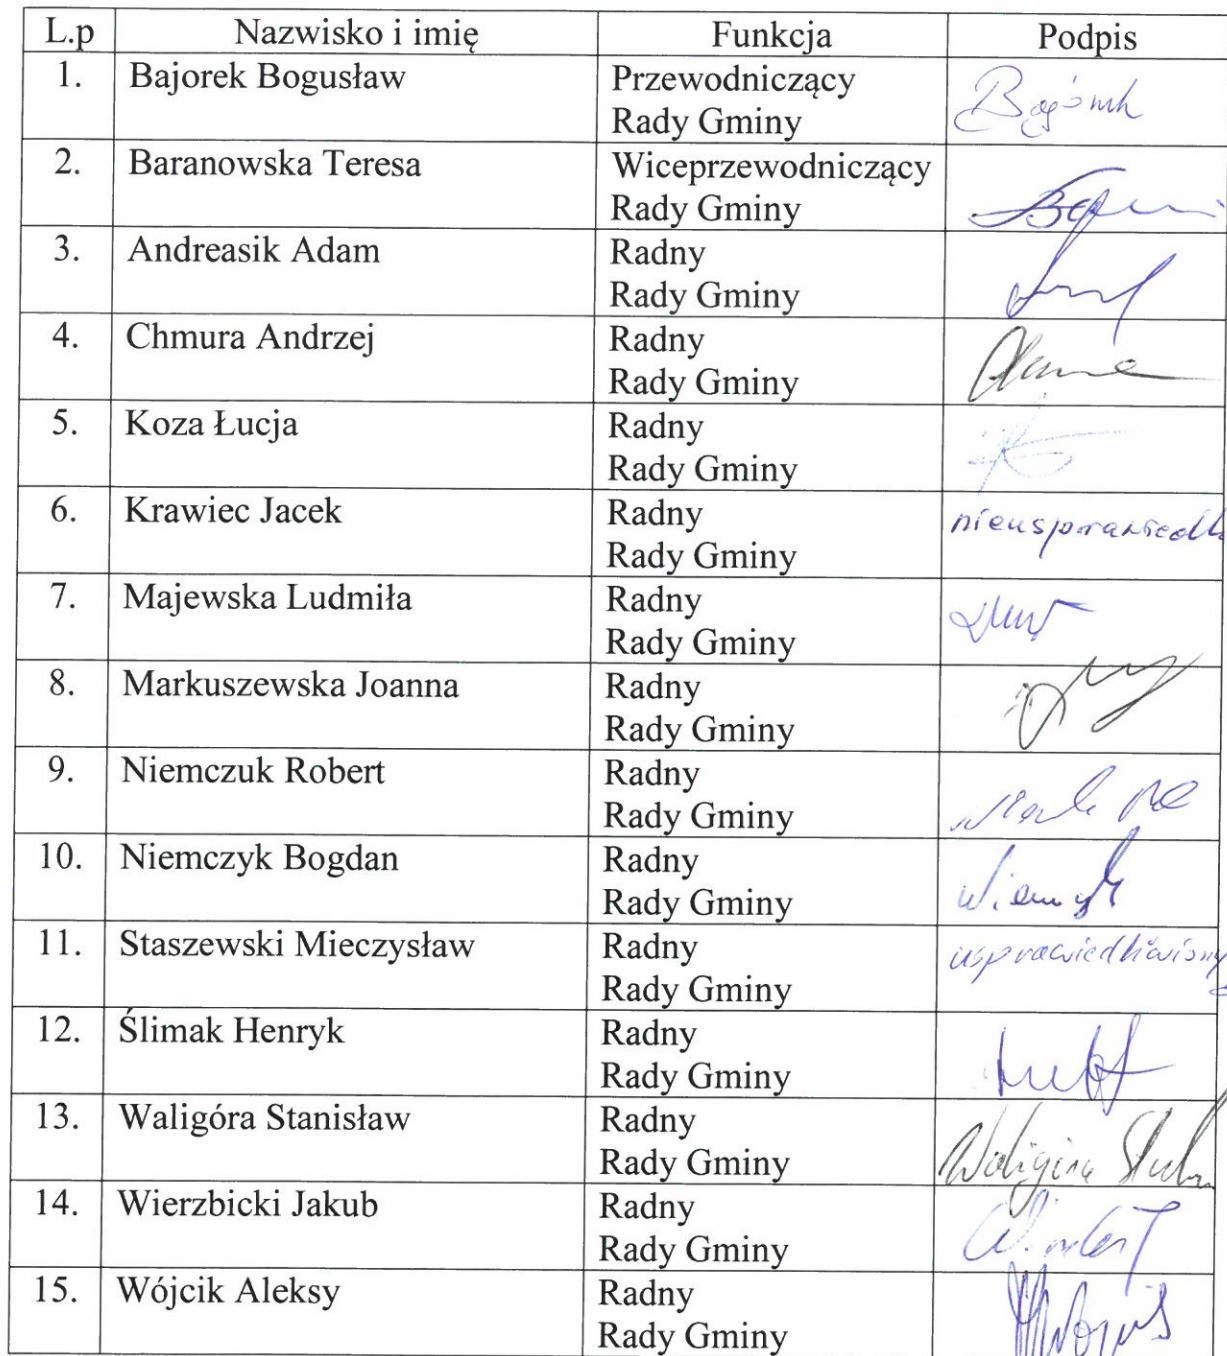 L.p Nazwisko i imię Funkcja Podpis
1. Bajorek Bogusław Przewodniczący
Rady Gminy
2. Baranowska Teresa Wiceprzewodniczący
Rady Gminy
3. Andreasik Adam Radny
Rady Gminy
4. Chmura Andrzej Radny
Rady Gminy
5. Koza Łucja Radny
Rady Gminy
6. Krawiec Jacek Radny
Rady Gminy
7. Majewska Ludmiła Radny
Rady Gminy
8. Markuszewska Joanna Radny
Rady Gminy
9. Niemczuk Robert Radny
Rady Gminy
10. Niemczyk Bogdan Radny
Rady Gminy
11. Staszewski Mieczysław Radny usprawiedliwiony
Rady Gminy
12. Ślimak Henryk Radny
Rady Gminy
13. Waligóra Stanisław Radny
Rady Gminy
14. Wierzbicki Jakub Radny
Rady Gminy
15. Wójcik Aleksy Radny
Rady Gminy